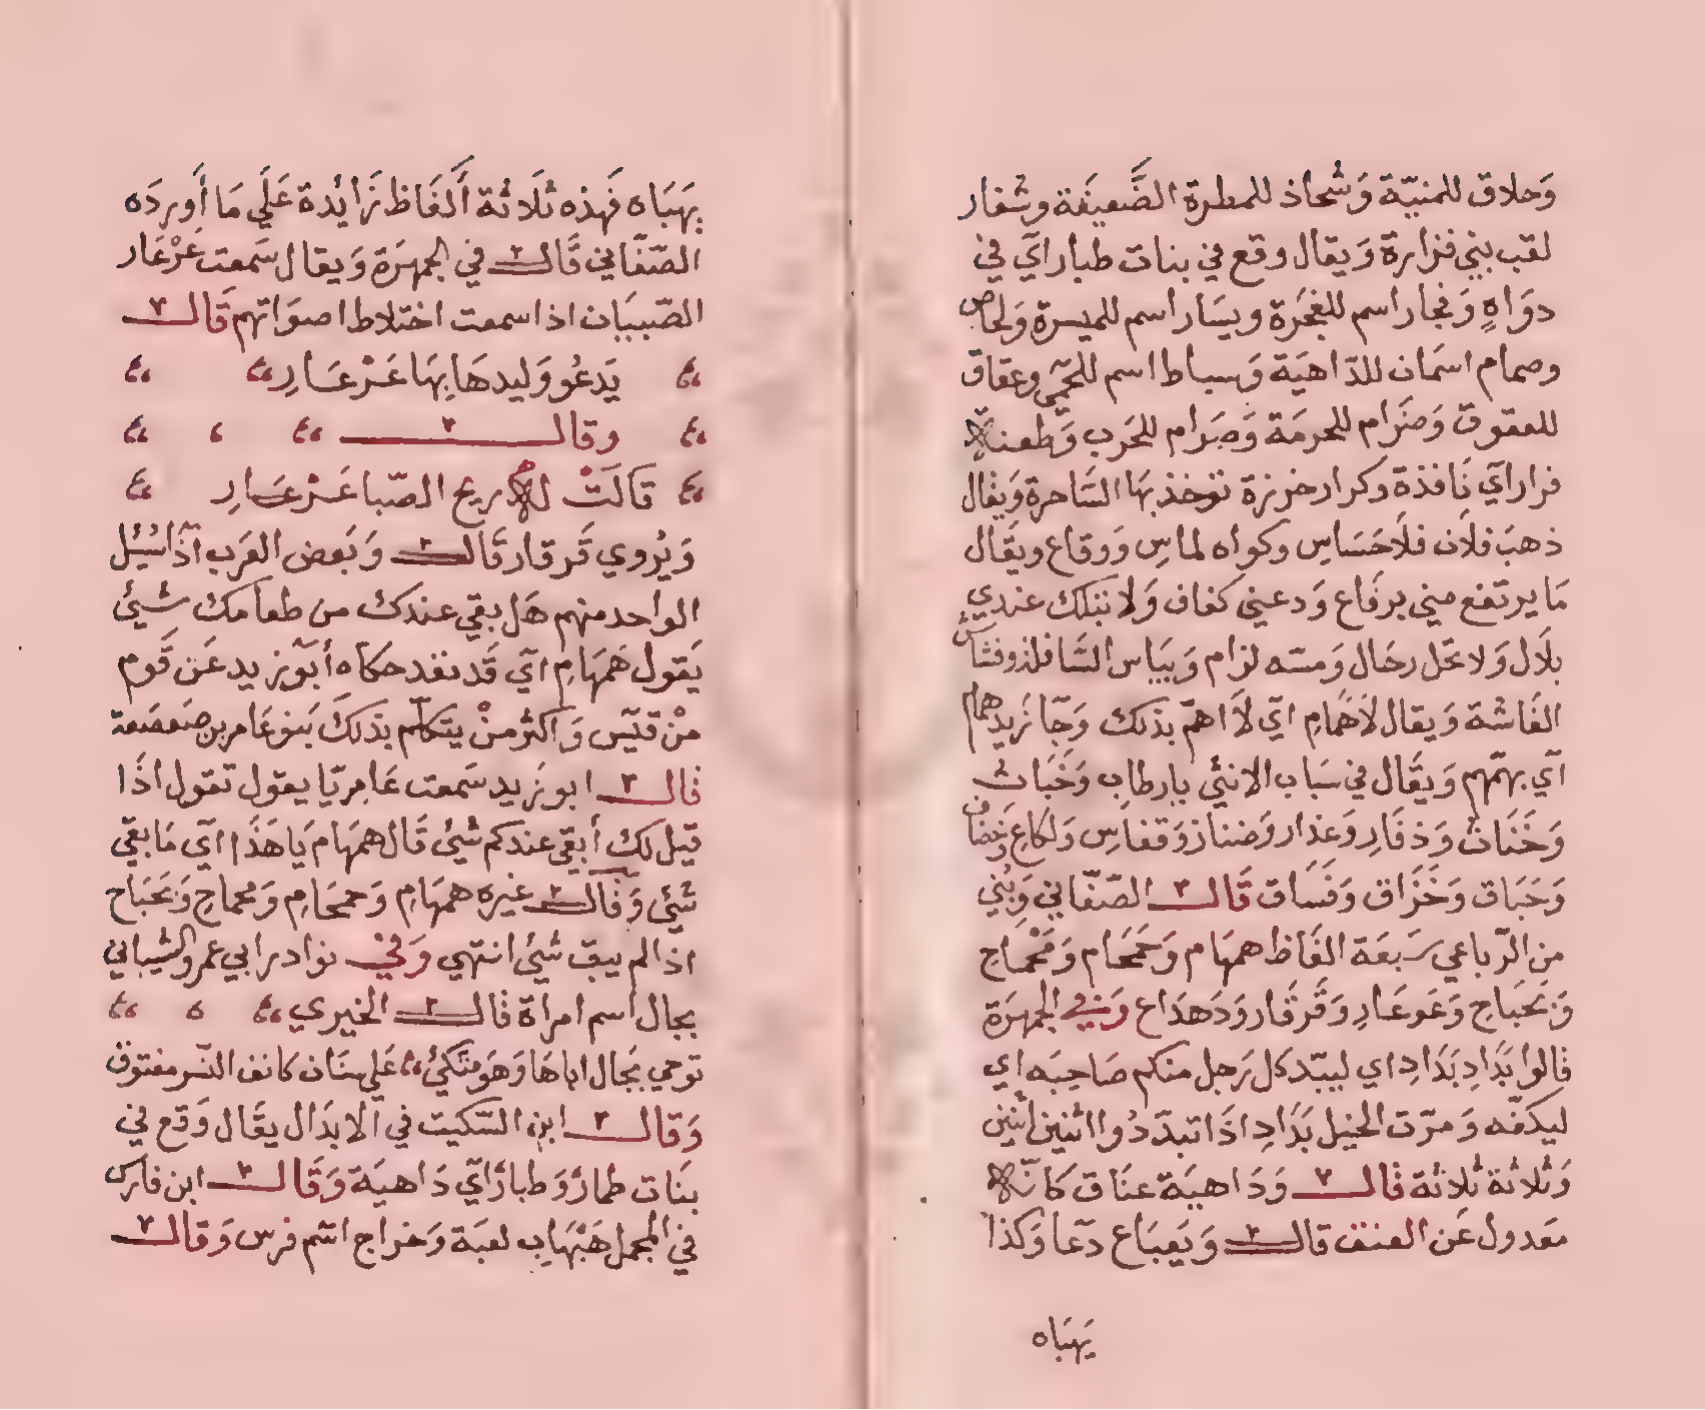 وَحلاق للمنيّة وَشحاذ للمطرة الضَّعيفَة وشغار
لقب بني فزارة وَيقال وقع في بنات طبار اي في
دوَاهٍ وَفجار اسم للفجَرة ويسَار اسم للميسرة وَلحاص
وصمام اسمَان للدّاهيَة وَسباط اسم للحمّى وعقاق
للعقوق وَصَرَام للحرمَة وَضِرَام للحَرب وَطعنه
فرار اي نَافذة وكرار خرزة توخذ بهَا السَّاحرة وَيقال
ذهبَ فلان فلاحَسَاسِ وكواه لماسِ وَوقاع ويقَال
مَا يرتفع مني برقَاع وَدعيني كفاف وَلا تبلك عندي
بلَال وَلا تحل رحَال وَمسّه لزام وَيَبَاس السَّافلة وفشاش
الفَاشة وَيقال لاهمَامِ ايّ لَا اهمّ بذلك وَجَا زَيد همام
آي يهمّهم وَيقَال في سبَاب الانثَي يا رطاب وَخَبَاث
وَخَنَاث وَذفَارِ وَعذار وَضناز وَقفاسِ وَلكاعِ وَخضَاف
وَحَبَاق وَخَزَاق وَفَسَاق قَالَ الصّغّاني وَبُني
مِن الرّباعي سَبعَة الفَاظ همهَام وَحَمحَام وَمَحْمَاحِ
وَبَحبَاحِ وَعَرعَارِ وَقَرقَار وَدَهدَاع وَفي الجمهرَة
قالوا بَدَادِ بَدَادِ اي ليبدّ كل رَجل منكم صَاحبَه اي
ليكفّه وَمرّت الخيل بَدَادِ اذَا تبدّدُوا اثنين اثنين
وَثلاثة ثلاثة قالَ وَدَاهيَة عنَاق كَانّه
معَدول عَن العنق قال وَيَعيَاع دعَا وَكذا
يَهيَاه
يهَيَاه فَهذه ثلَاثة أَلفَاظ زَايدة عَلَي مَا أَوردَه
الصّغّاني قَال في الجمهرَة وَيقال سَمعت عَرْعَار
الصّبيَان اذا سمعت اختلاط اصوَاتهم قَال
يَدعُو وَليدهَا بِهَا عَرْعَارِ
وقال
قَالَتْ له ريح الصّبا عَرْعَارِ
وَيُروي قَرقار قَال وَبَعض العَرب اذَا سُئِل
الواحد منهم هَل بقي عندك من طعَامك شيئ
يَقول همهَامِ اي قَد نفد حكاه أَبو زيد عَن قَوم
مْن قيَس وَاكثر منْ يتكلم بذلكَ بَنو عَامر بن صَعصَعة
قال ابو زَيد سَمعت عَامِريّا يقول تقول اذَا
قيل لك أَبقي عندكم شئ قَال همهَام يَا هَذَا اي مَا بقي
شئ وَقَال غيره همهَامِ وَحمحَامِ وَمحماحِ وَبَحبَاح
اذا لم يبق شئ انتهي وَفي نوادر ابي عمرو الشيباني
بجال اسم امراة قال الخيري
توحي بجَال اباهَا وَهَو متكئ على سنَان كانف النّسر مفتوق
وَقال ابن السّكيت في الابدَال يقَال وَقع في
بنَات طمارَ وَطبارَ آي دَاهيَة وَقَال ابن فارس
في المجمل هَبْهَابِ لعبَة وَخراج اسم فرس وَقال